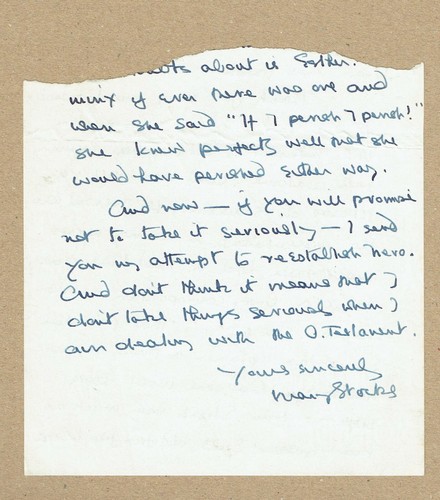 about is Esther.
minx if ever there was one and
when she said "If I perish I perish!"
she knew perfectly well that she
would have perished either way.
And now — if you will promise
not to take it seriously — I send
you my attempt to reestablish hero.
And don't think it means that I
don't take things seriously when I
am dealing with the O. Testament.
Yours sincerely
Mary Stocks